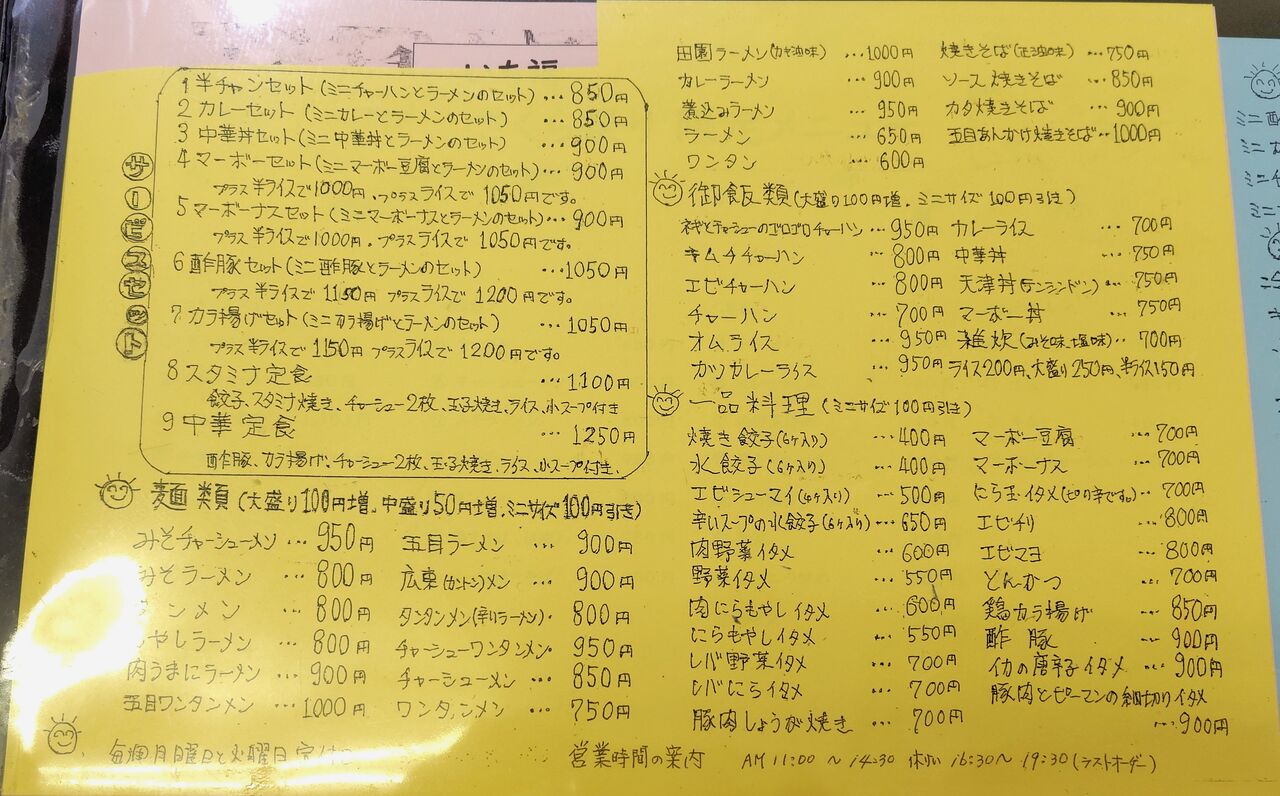 サービスセット
1 半チャンセット(ミニチャーハンとラーメンのセット)…850円
2 カレーセット(ミニカレーとラーメンのセット)…850円
3 中華丼セット(ミニ中華丼とラーメンのセット)…900円
4 マーボーセット(ミニマーボー豆腐とラーメンのセット)…900円
プラス半ライスで1000円、プラスライスで1050円です。
5 マーボーナスセット(ミニマーボーナスとラーメンのセット)…900円
プラス半ライスで1000円。プラスライスで1050円です。
6 酢豚セット(ミニ酢豚とラーメンのセット)…1050円
プラス半ライスで1150円 プラスライスで1200円です。
7 カラ揚げセット(ミニカラ揚げとラーメンのセット)…1050円
プラス半ライスで1150円 プラスライスで1200円です。
8 スタミナ定食…1100円
餃子、スタミナ焼き、チャーシュー2枚、玉子焼き、ライス、小スープ付き
9 中華定食…1250円
酢豚、カラ揚げ、チャーシュー2枚、玉子焼き、ライス、小スープ付き、
麺類(大盛り100円増、中盛り50円増、ミニサイズ100円引き)
みそチャーシューメン…950円 五目ラーメン…900円
みそラーメン…800円 広東(カントン)メン…900円
ンメン…800円 タンタンメン(辛りラーメン)・800円
やしラーメン…800円 チャーシューワンタンメン・950円
肉うまにラーメン…900円 チャーシューメン…850円
五目ワンタンメン…1000円 ワンタンメン…750円
田園ラーメン(カキ油味)…1000円 焼きそば(正油味)…750円
カレーラーメン…900円 ソース焼きそば…850円
煮込みラーメン…950円 カタ焼きそば…900円
ラーメン…650円 五目あんかけ焼きそば…1000円
ワンタン…600円
御飯類(大盛り100円増、ミニサイズ100円引き)
ネギとチャシューのゴロゴロチャーハン…950円 カレーライス…700円
キムチチャーハン…800円 中華丼…750円
エビチャーハン…800円 天津丼(テンシンドン)…750円
チャーハン…700円 マーボー丼…750円
オムライス…950円 雑炊(みそ味、塩味)…700円
カツカレーライス…950円 ライス200円、大盛り250円、半ライス150円
一品料理(ミニサイズ100円引き)
焼き餃子(6ケ入り)…400円 マーボー豆腐…700円
水餃子(6ケ入り)…400円 マーボーナス…700円
エビシューマイ(4ケ入り)…500円 にら玉イタメ(ピリ辛です。)…700円
辛いスープの水餃子(6ケ入り)…650円 エビチリ…800円
肉野菜イタメ…600円 エビマヨ…800円
野菜イタメ…550円 とんかつ…700円
肉にらもやしイタメ…600円 鶏カラ揚げ…850円
にらもやしイタメ…550円 酢豚…900円
レバ野菜イタメ…700円 イカの唐辛子イタメ…900円
レバにらイタメ…700円 豚肉とピーマンの細切りイタメ…900円
豚肉しょうが焼き…700円
毎週月曜日と火曜日定休日
営業時間の案内 AM 11:00 〜 14:30 休けい 16:30〜 19:30(ラストオーダー)